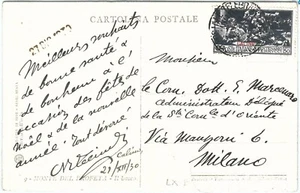 CARTOLINA POSTALE
Meilleurs souhaits
de bonne santé &
de bonheur à l'
occasion des fêtes de
Noël & de la nouvelle
année! Tout dévoué
21/XII/30
Monsieur
le Com. Dott. E. Marcenaro
administrateur Délégué
de la d'Oriente
Via Manzoni 6.
Milano